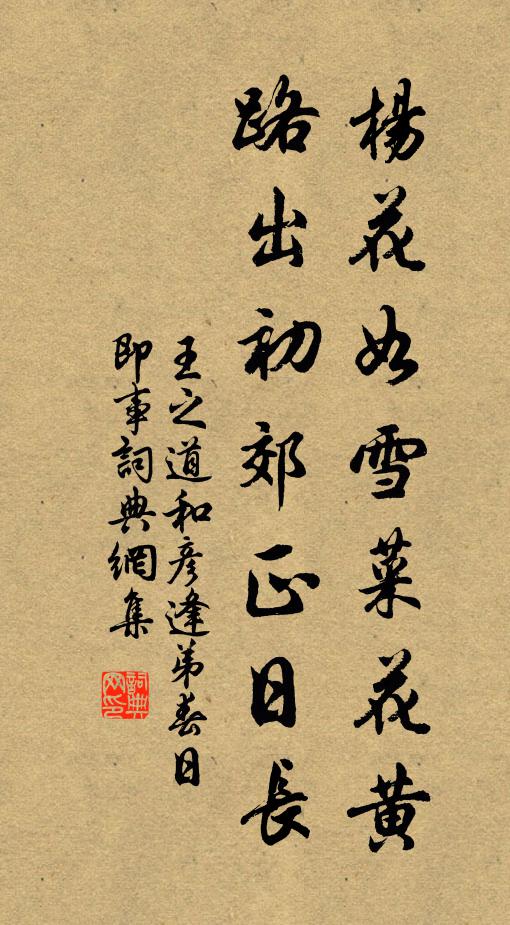 楊花如雪菜花黃
路出初郊正日長
王之道和彦逢弟春日
即事詞典網集
詞典網印